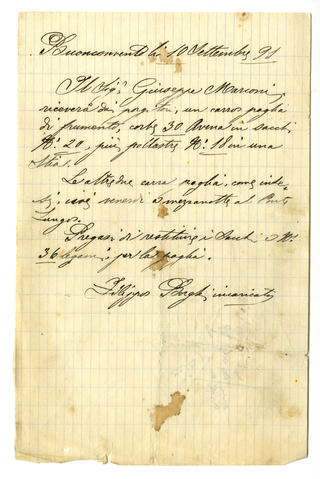 Buonconvento li 10 Settembre 91
Il Sigr Giuseppe Marconi
riceverà dai porgitori, un carro paglia
di frumento, corbe 30 Avena in sacchi
N: 20, più pollastre N: 18 in una
Stia.
Le altre due carra paglia, come inte-
si, venerdì a mezzanotte al Ponte
Lungo.
Pregasi di restituire i Sacchi e N:
36 legami, per la paglia.
Filippo Borghi incaricato